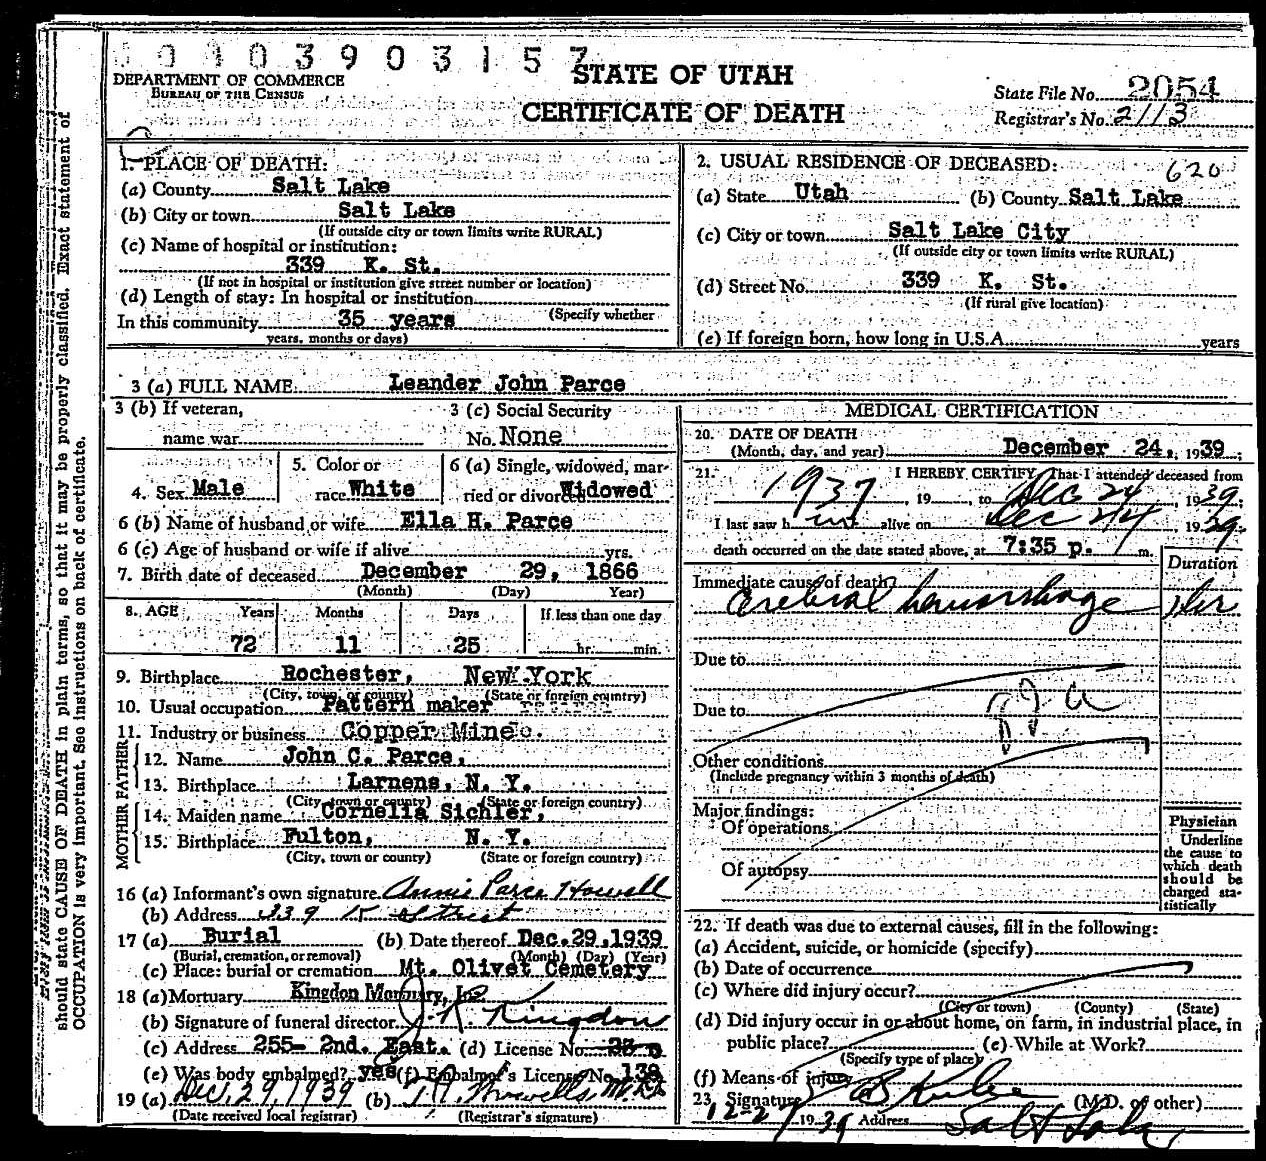 0 4 0 3 9 0 3 1 5 7
DEPARTMENT OF COMMERCE
BUREAU OF THE CENSUS
STATE OF UTAH
CERTIFICATE OF DEATH
State File No. 2054
Registrar's No. 2113
1. PLACE OF DEATH:
(a) County Salt Lake
(b) City or town Salt Lake
(If outside city or town limits write RURAL)
(c) Name of hospital or institution:
339 K. St.
(If not in hospital or institution give street number or location)
(d) Length of stay: In hospital or institution
(Specify whether
In this community 35 years
years, months or days)
2. USUAL RESIDENCE OF DECEASED:
620
(a) State Utah (b) County Salt Lake
(c) City or town Salt Lake City
(If outside city or town limits write RURAL)
(d) Street No. 339 K. St.
(If rural give location)
(e) If foreign born, how long in U.S.A. years
3 (a) FULL NAME Leander John Parce
3 (b) If veteran,
name war
3 (c) Social Security
No. None
4. Sex Male
5. Color or
race White
6 (a) Single, widowed, mar-
ried or divorced Widowed
6 (b) Name of husband or wife Ella H. Parce
6 (c) Age of husband or wife if alive yrs.
7. Birth date of deceased December 29, 1866
(Month) (Day) Year)
8. AGE Years Months Days If less than one day
72 11 25 hr. min.
9. Birthplace Rochester, New York
(City, town, or county) (State or foreign country)
10. Usual occupation Pattern maker
11. Industry or business Copper Mine
FATHER
12. Name John C. Parce,
13. Birthplace Larnens, N. Y.
(City, town or county) (State or foreign country)
MOTHER
14. Maiden name Cornelia Sichler,
15. Birthplace Fulton, N. Y.
(City, town or county) (State or foreign country)
16 (a) Informant's own signature Annie Parce Howell
(b) Address 339 K Street
17 (a) Burial (b) Date thereof Dec. 29, 1939
(Burial, cremation, or removal) (Month) (Day) (Year)
(c) Place: burial or cremation Mt. Olivet Cemetery
18 (a) Mortuary Kingdon Mortuary, Inc.
(b) Signature of funeral director J. R. Kingdon
(c) Address 255- 2nd. East. (d) License No.
(e) Was body embalmed? yes (f) Embalmer's License No. 138
19 (a) Dec. 29, 1939 (b)
(Date received local registrar) (Registrar's signature)
MEDICAL CERTIFICATION
20. DATE OF DEATH
(Month, day, and year) December 24, 1939;
21. I HEREBY CERTIFY, That I attended deceased from
1937, 19 , to Dec 24 1939,
I last saw him alive on Dec 24 1939
death occurred on the date stated above, at 7:35 p. m.
Duration
Immediate cause of death
Cerebral hemorrhage
Due to
Due to
Other conditions
(Include pregnancy within 3 months of death)
Major findings:
Of operations
Of autopsy
Physician
Underline
the cause to
which death
should be
charged sta-
tistically
22. If death was due to external causes, fill in the following:
(a) Accident, suicide, or homicide (specify)
(b) Date of occurrence
(c) Where did injury occur?
(City or town) (County) (State)
(d) Did injury occur in or about home, on farm, in industrial place, in
public place? (e) While at Work?
(Specify type of place)
(f) Means of injury
23. Signature (M.D. of other)
12-27 1939 Address Salt Lake
should state CAUSE OF DEATH in plain terms, so that it may be properly classified. Exact statement of
OCCUPATION is very important. See instructions on back of certificate.